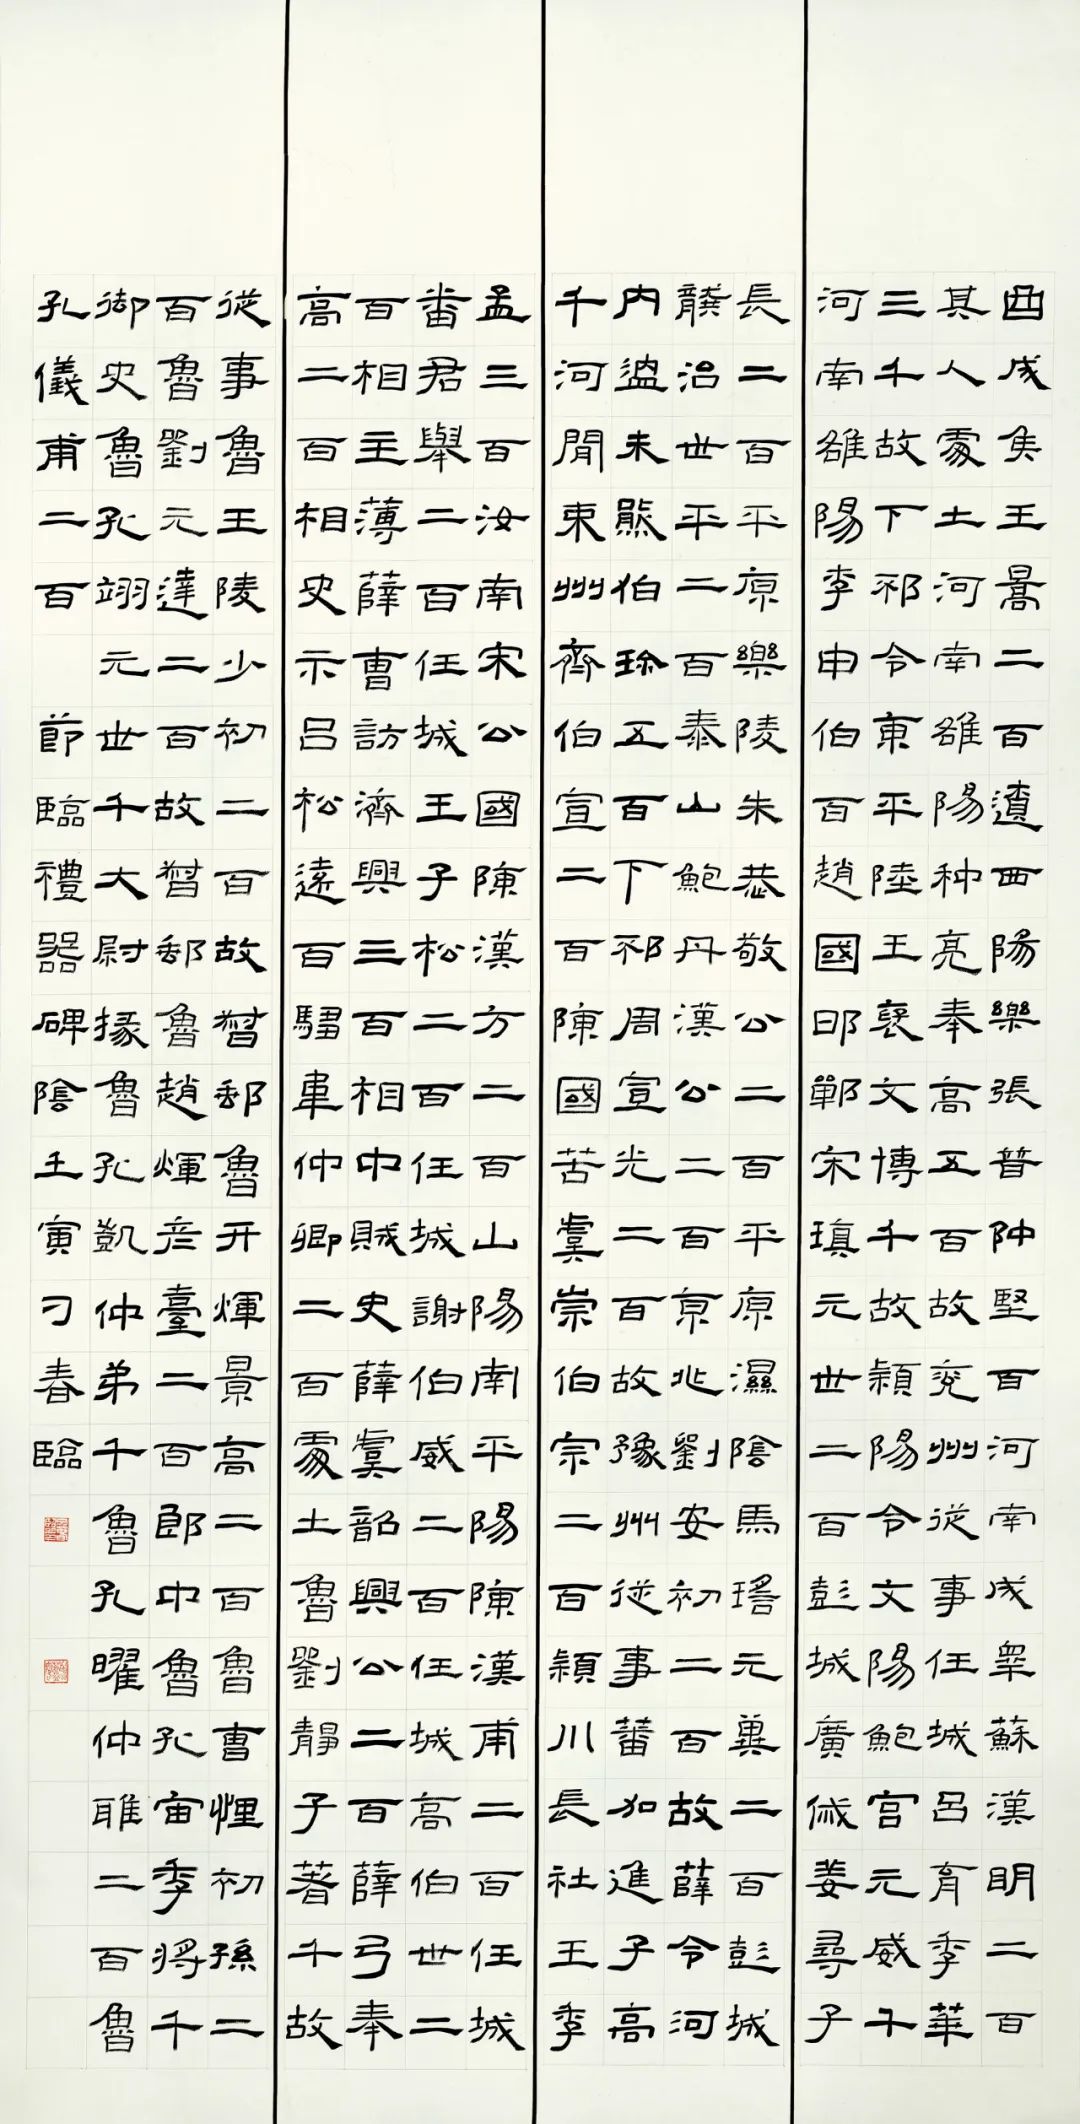 曲成矦王暠二百遼西陽樂張普仲堅百河南成睾蘇漢明二百
其人處士河南雒陽种亮奉高五百故兖州從事任城呂育季華
三千故下邳令東平陸王褒文博千故潁陽令文陽鮑宮元威千
河南雒陽李申伯百趙國邯鄲宋瑱元世二百彭城廣戚姜尋子
長二百平原樂陵朱恭敬公二百平原濕陰馬瑤元冀二百彭城
龔治世平二百泰山鮑丹漢公二百京兆劉安初二百故薛令河
內溫朱熊伯珍五百下邳周宣光二百故豫州從事蕃加進子高
千河閒東州齊伯宣二百陳國苦虞崇伯宗二百潁川長社王季
孟三百汝南宋公國陳漢方二百山陽南平陽陳漢甫二百任城
番君舉二百任城王子松二百任城謝伯威二百任城高伯世二
百相主薄薛曹訪濟興三百相中賊史薛虞韶興公二百薛弓奉
高二百相史卞呂松遠百騶韋仲卿二百處士魯劉靜子著千故
從事魯王陵少初二百故督郵魯开煇景高二百魯曹悝初孫二
百魯劉元達二百故督郵魯趙煇彥臺二百郎中魯孔宙季將千
御史魯孔翊元世千大尉掾魯孔凱仲弟千魯孔曜仲雅二百魯
孔儀甫二百 節臨禮器碑陰壬寅刁春臨